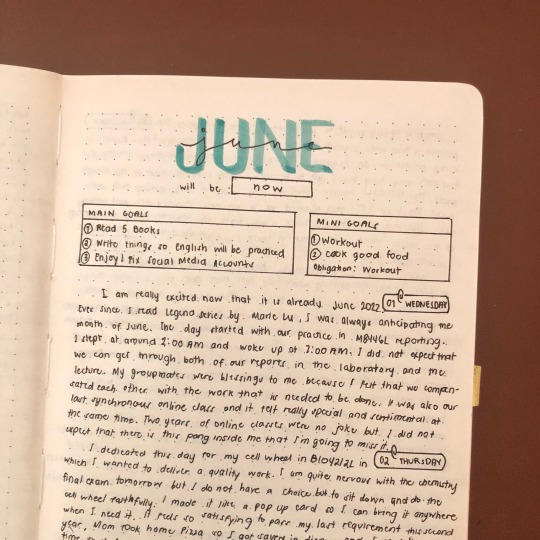 JUNE
june
will be: now
MAIN GOALS
① Read 5 Books
② Write things so English will be practiced
③ Enjoy! Fix Social Media Accounts
MINI GOALS
① Workout
② cook good food
Obligation: Workout
I am really excited now that it is already June 2022. 01 WEDNESDAY
Ever since I read Legend series by Marie Lu, I was always anticipating the
month of June. The day started with our practice in reporting.
I slept at around 2:00 AM and woke up at 7:00 AM. I did not expect that
we can get through both of our reports in the laboratory and the
lecture. My groupmates were blessings to me because I felt that we compen-
sated each other with the work that is needed to be done. It was also our
last synchronous online class and it felt really special and sentimental at
the same time. Two years of online classes were no joke but I did not
expect that there is this pang inside me that I'm going to miss it.
I dedicated this day for my cell wheel in in 02 THURSDAY
which I wanted to deliver a quality work. I am quite nervous with the chemistry
final exam tomorrow but I do not have a choice but to sit down and do the
cell wheel faithfully. I made it like a pop up card so I can bring it anywhere
when I need it. It feels so satisfying to pass my last requirement this second
year. Mom took home Pizza so I got saved in